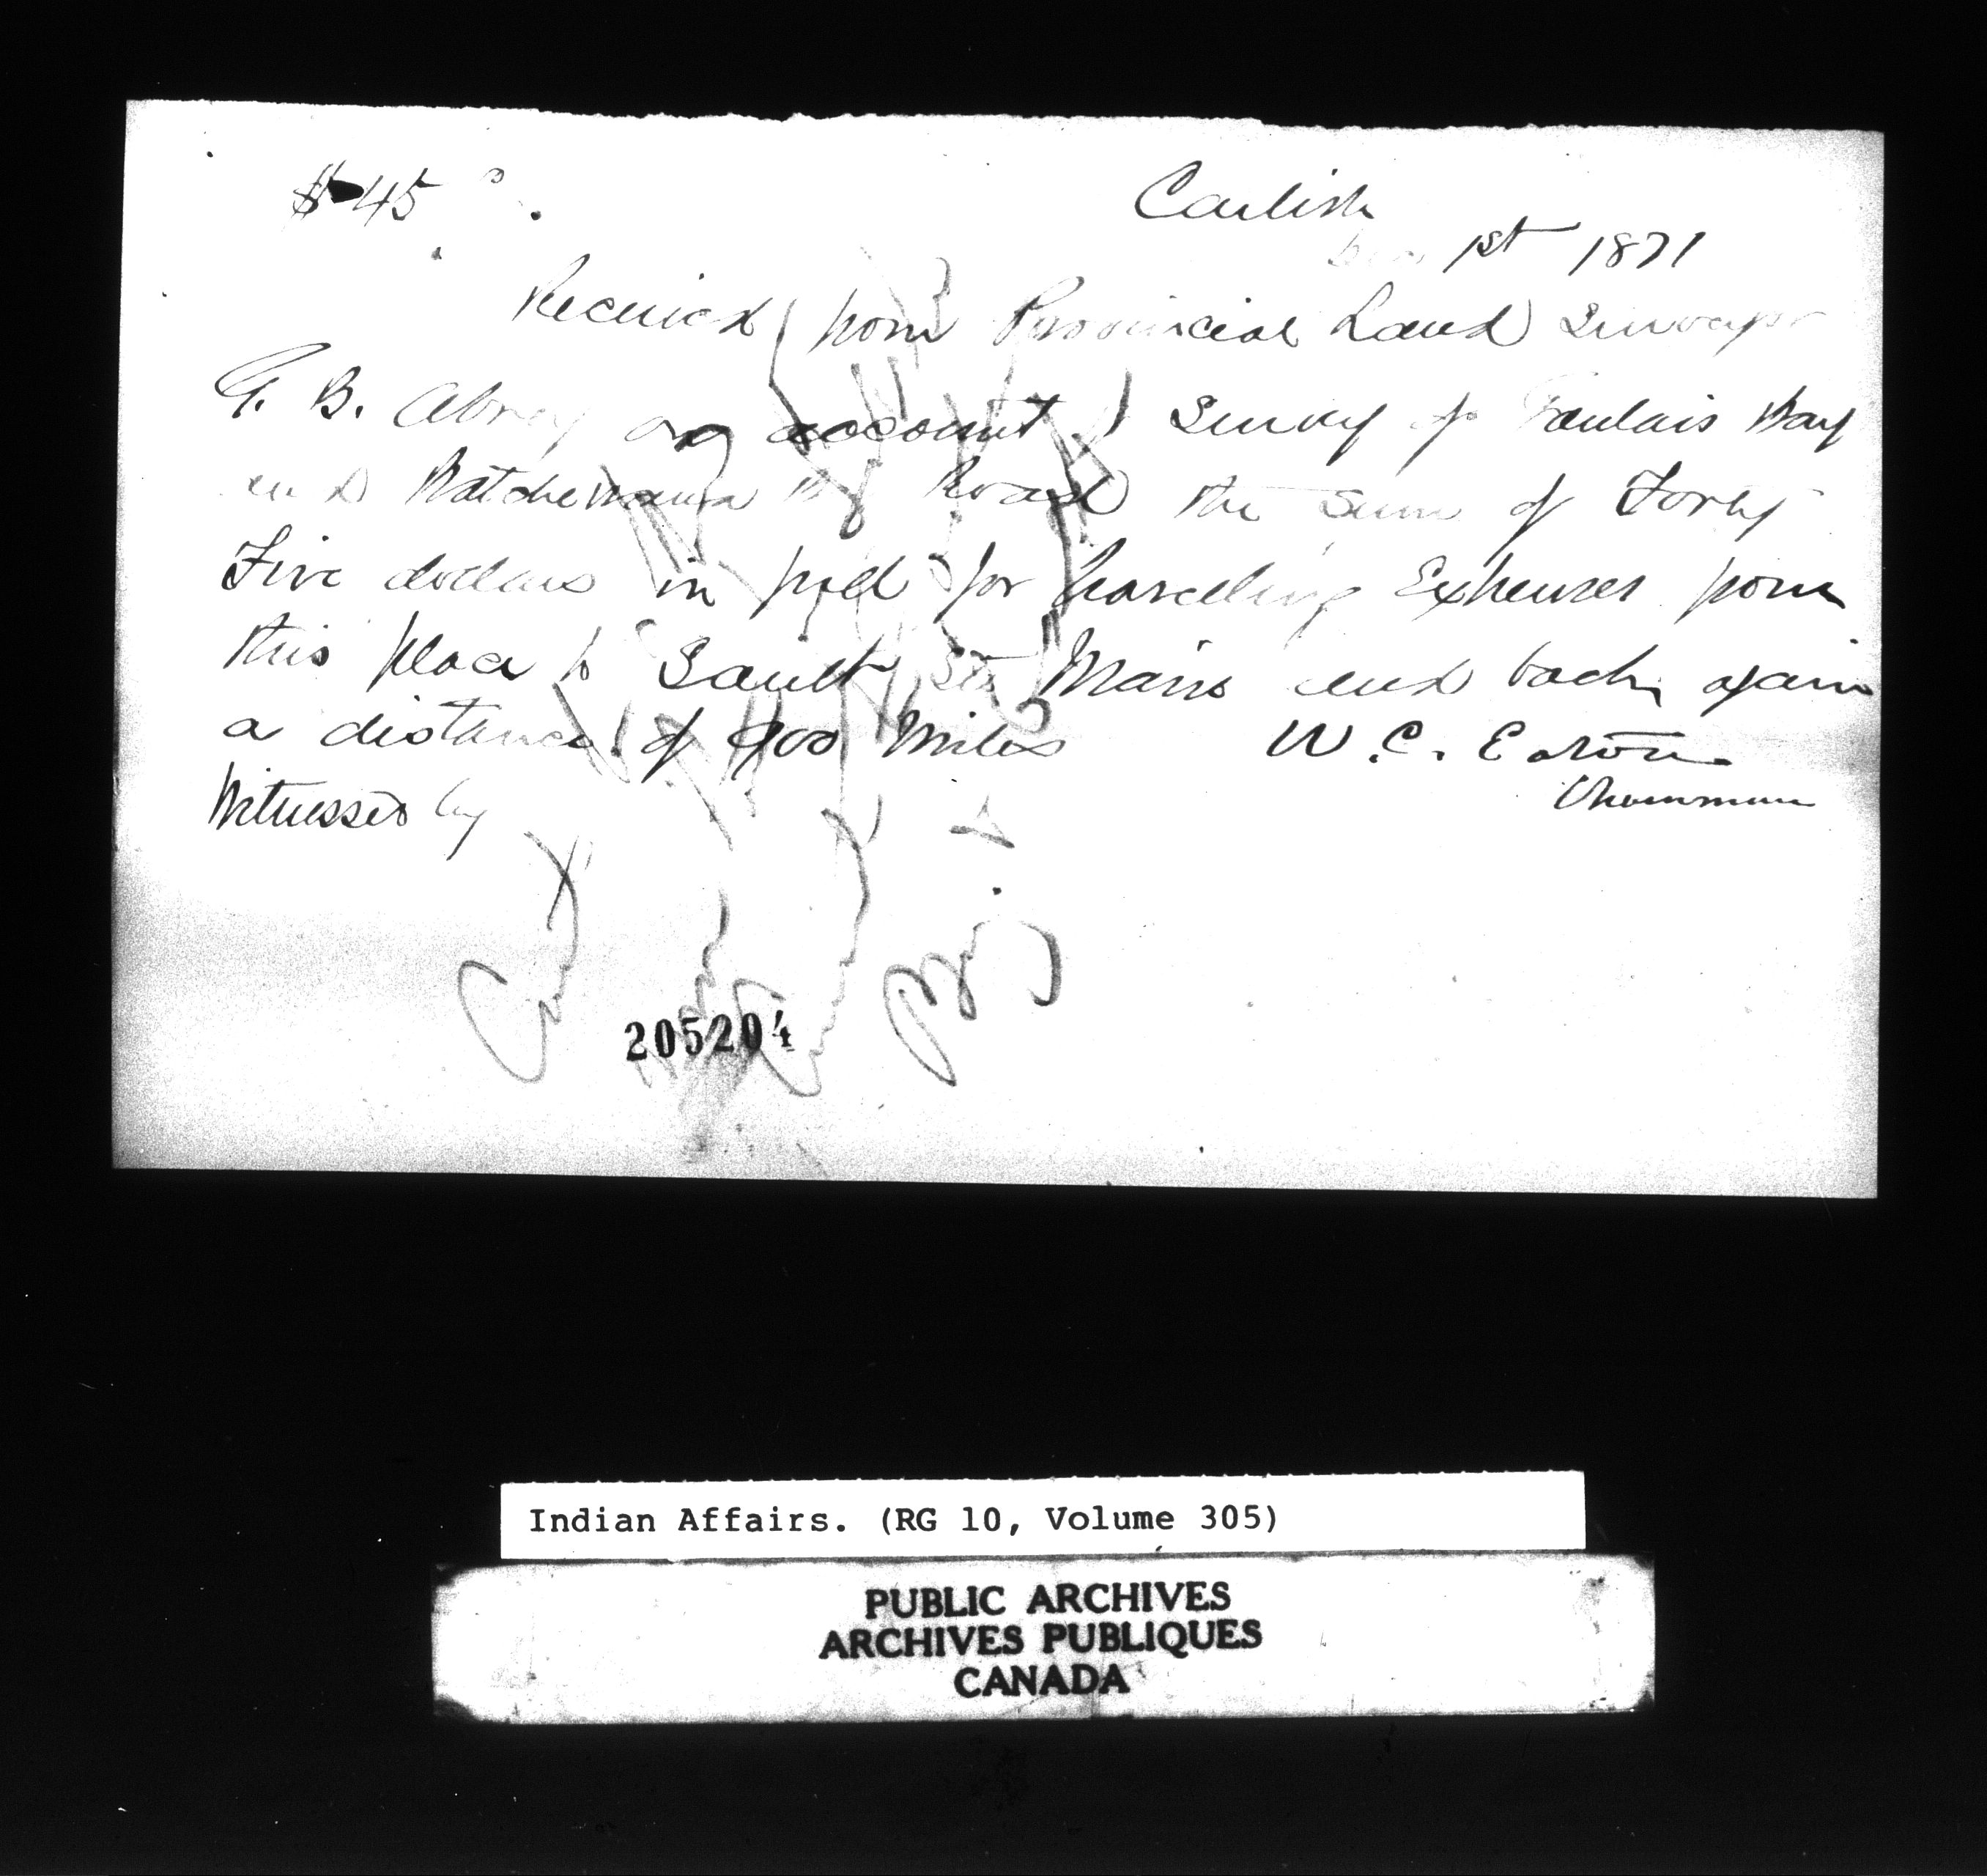 $45
Carlisle
1st 1871
Received from Provincial Land Surveyor
G. B. Abrey on account of Survey of Goulais Bay
and Batchewana Bay Road the Sum of Forty
Five dollars in full for travelling Expenses from
this place to Sault Ste Marie and back again
a distance of 900 Miles W. C. Eaton
Chainman
Witnessed by
205204
Indian Affairs. (RG 10, Volume 305)
PUBLIC ARCHIVES
ARCHIVES PUBLIQUES
CANADA